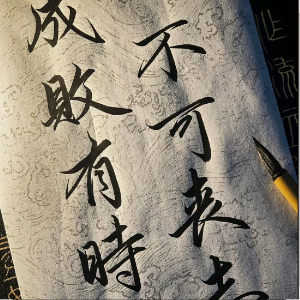 不可丧志
成敗有時